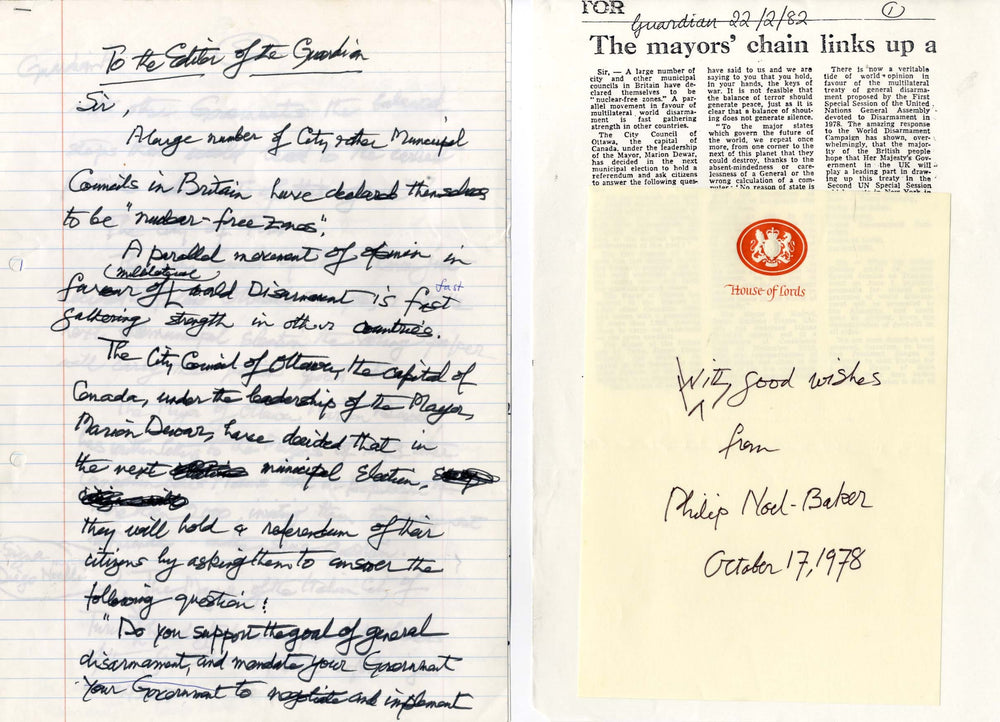 To the Editor of the Guardian
Sir,
A large number of City & other Municipal
Councils in Britain have declared themselves
to be "nuclear-free zones".
A parallel movement of opinion in
(multilateral
favour of world Disarmament is fast
fast
gathering strength in other countries.
The City Council of Ottawa, the capital of
Canada, under the leadership of the Mayor,
Marion Dewar, have decided that in
the next municipal Election,
they will hold a referendum of their
citizens by asking them to answer the
following question:
"Do you support the goal of general
disarmament, and mandate your Government
Your Government to negotiate and implement
TOR
Guardian 22/2/82
1
The mayors' chain links up a
Sir, — A large number of
city and other municipal
councils in Britain have de-
clared themselves to be
"nuclear-free zones." A par-
allel movement in favour of
multilateral world disarma-
ment is fast gathering
strength in other countries.
The City Council of
Ottawa, the capital of
Canada, under the leadership
of the Mayor, Marion Dewar,
has decided in the next
municipal election to hold a
referendum and ask citizens
to answer the following ques-
have said to us and we are
saying to you that you hold,
in your hands, the keys of
war. It is not feasible that
the balance of terror should
generate peace, just as it is
clear that a balance of shout-
ing does not generate silence.
"To the major states
which govern the future of
the world, we repeat once
more, from one corner to the
next of this planet that they
could destroy, thanks to the
absent-mindedness or care-
lessness of a General or the
wrong calculation of a com-
puter: 'No reason of state is
There is now a veritable
tide of world opinion in
favour of the multilateral
treaty of general disarma-
ment proposed by the First
Special Session of the United
Nations General Assembly
devoted to Disarmament in
1978. The amazing response
to the World Disarmament
Campaign has shown, over-
whelmingly, that the major-
ity of the British people
hope that Her Majesty's Gov-
ernment in the UK will
play a leading part in draw-
ing up this treaty in the
Second UN Special Session
House of Lords
With good wishes
from
Philip Noel-Baker
October 17, 1978